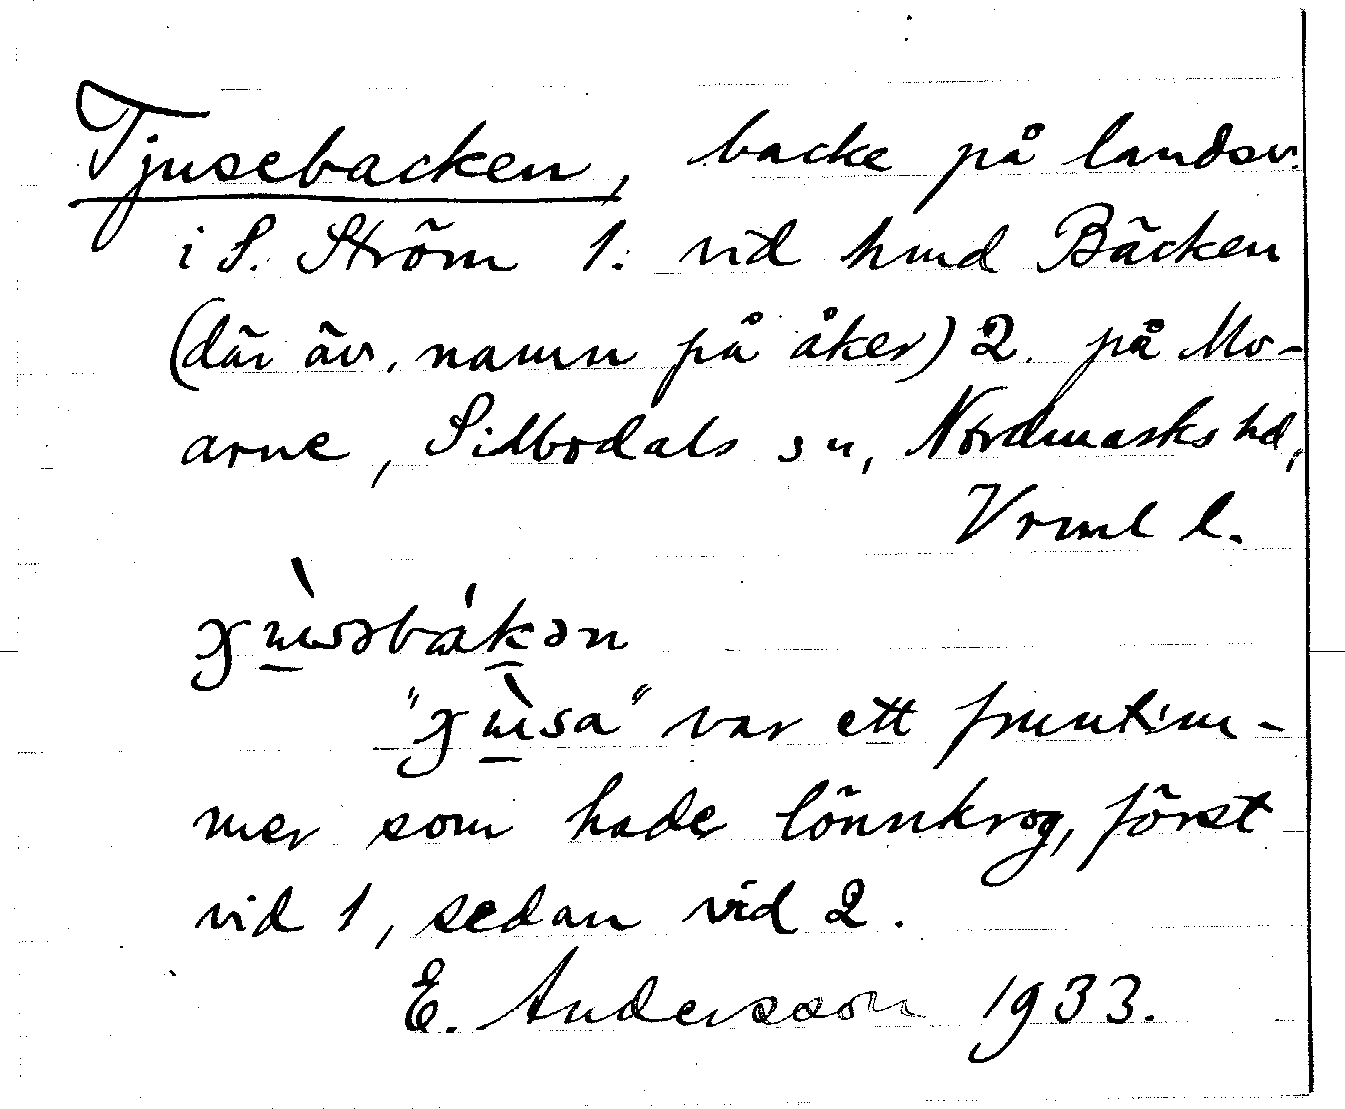 Tjusebacken, backe på landsv.
i S. Ström 1. vid hmd Bäcken
(där äv. namn på åker) 2. på Mo-
arne, Silbodals sn, Nordmarks hd,
Vrml l.
"sa" var ett fruntim-
mer som hade lönnkrog, först
vid 1, sedan vid 2.
E. Andersson 1933.